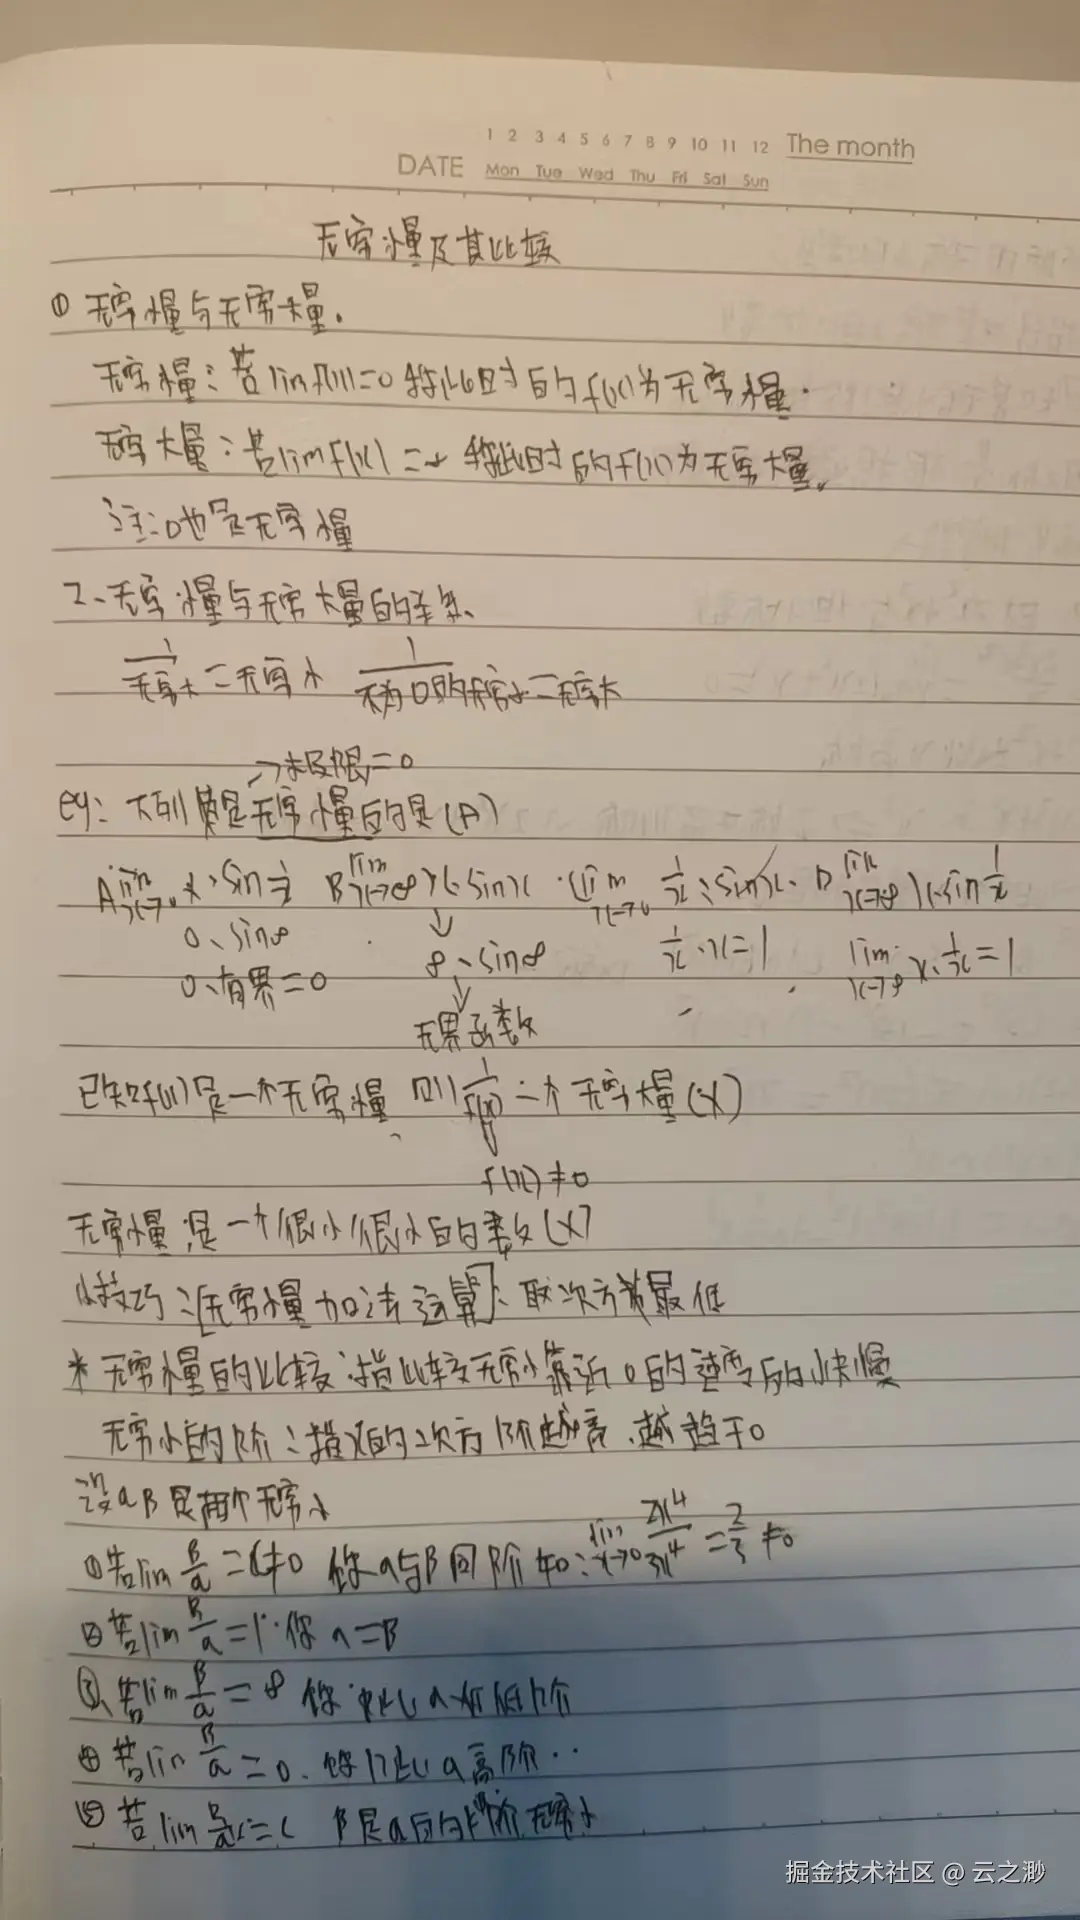 1 2 3 4 5 6 7 8 9 10 11 12 The month
DATE Mon Tue Wed Thu Fri Sat Sun
无穷小量及其比较
① 无穷小量与无穷大量.
无穷小量：若lim f(x)=0 称此时的f(x)为无穷小量.
无穷大量：若lim f(x)=∞ 称此时的f(x)为无穷大量.
注：0也是无穷小量
2、无穷小量与无穷大量的关系、
1/无穷大=无穷小 1/不为0的无穷小=无穷大
→极限=0
eg: 下列 是无穷小量的是(A)
A lim x→0 x·sin 1/x B lim x→∞ x·sinx C lim x→0 1/x·sinx D lim x→∞ x·sin 1/x
0·sin∞ ↓ 1/x·x=1 lim x→∞ x·1/x=1
0·有界=0 ∞·sin∞
↓
无界函数
已知f(x)是一个无穷小量 则 1/f(x) 一个无穷大量(×)
f(x)≠0
无穷小量是一个很小很小的数(×)
小技巧：[无穷小量加法运算]：取次方 最低
* 无穷小量的比较：指比较无穷小靠近0的速度的快慢
无穷小的阶：指x的次方 阶越高、越趋于0
设aβ是两个无穷小
①若lim β/a=C≠0 称a与β同阶 如：lim x→0 2x⁴/3x⁴=2/3≠0
②若lim β/a=1 称a=β
③若lim β/a=∞ 称 比a 低阶
④若lim β/a=0、称β比a高阶..
⑤若lim β/aᵏ=C β是a的k阶无穷小
掘金技术社区 @ 云之渺